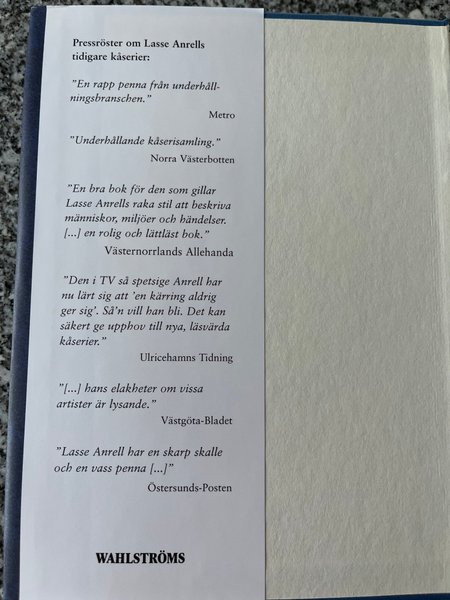 Pressröster om Lasse Anrells
tidigare kåserier:
”En rapp penna från underhåll-
ningsbranschen.”
Metro
”Underhållande kåserisamling.”
Norra Västerbotten
”En bra bok för den som gillar
Lasse Anrells raka stil att beskriva
människor, miljöer och händelser.
[...] en rolig och lättläst bok.”
Västernorrlands Allehanda
”Den i TV så spetsige Anrell har
nu lärt sig att ’en kärring aldrig
ger sig’. Så’n vill han bli. Det kan
säkert ge upphov till nya, läsvärda
kåserier.”
Ulricehamns Tidning
”[...] hans elakheter om vissa
artister är lysande.”
Västgöta-Bladet
”Lasse Anrell har en skarp skalle
och en vass penna [...]”
Östersunds-Posten
WAHLSTRÖMS